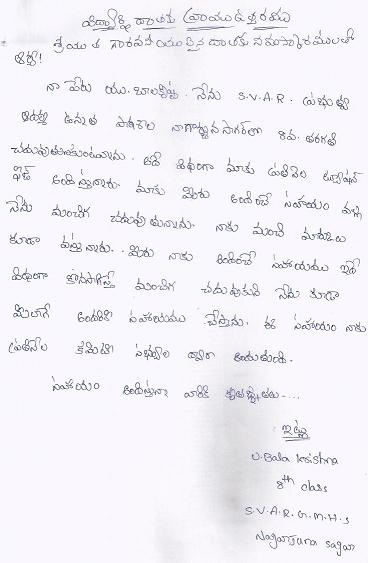 విద్యార్థి దాతకు వ్రాయు ఉత్తరము
శ్రీయుత గౌరవనీయులైన దాతకు నమస్కారములతో
ఆర్యా!
నా పేరు యు. బాలకృష్ణ. నేను S.V.A.R. ప్రభుత్వ
ఉన్నత పాఠశాల నాగార్జున సాగర్‌లో 8వ. తరగతి
చదువుతుంటున్నాను. అదే విధంగా మాకు ప్రతినెల
అందిస్తున్నారు. మాకు మీరు అందించే సహాయం వల్ల
నేను మంచిగ చదువుతున్నాను. నాకు మంచి మార్కులు
కూడా వస్తున్నారు. మీరు నాకు అందించే సహాయము ఇదే
విధంగా కొనసాగిస్తే మంచిగ చదువుకుని నేను కూడా
మీలాగే అందరికి సహాయము చేస్తాను. ఈ సహాయం నాకు
ప్రతినెల కమిటి సభ్యుల ద్వారా అందుతుంది.
సహాయం అందిస్తున్న వారికి కృతజ్ఞతలు....
ఇట్లు
U. Bala krishna
8th class
S.V.A.R.G.M.H.S
Nagarjuna sagar